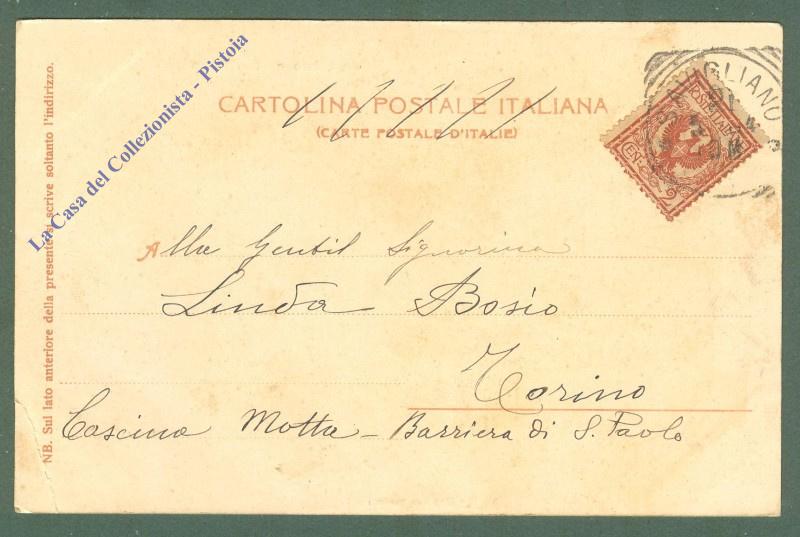 CARTOLINA POSTALE ITALIANA
(CARTE POSTALE D'ITALIE)
GLIANO
POSTE ITALIANE
CENT. 2
Alla Gentil Signorina
Linda Bosio
Torino
Cascina Motta - Barriera di S. Paolo
NB. Sul lato anteriore della presente si scrive soltanto l'indirizzo.
La Casa del Collezionista - Pistoia